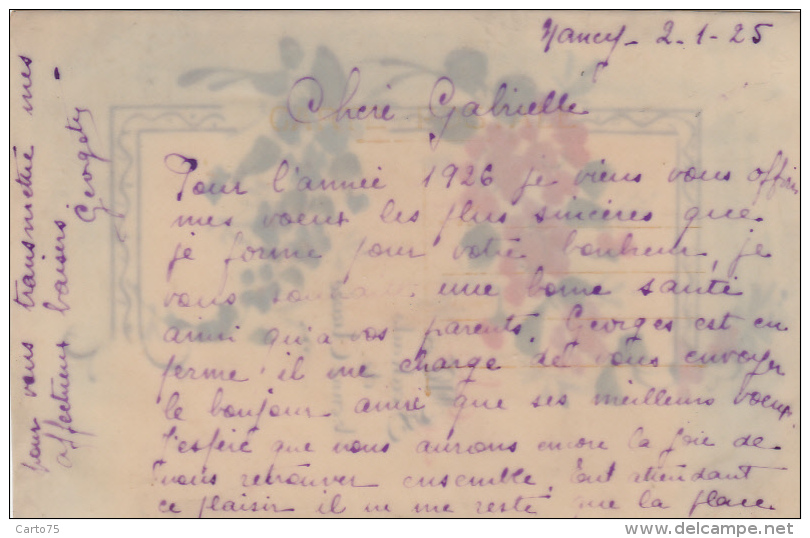 Nancy - 2-1-25
Chère Gabrielle
Pour l'année 1926 je viens vous offrir
mes voeux les plus sincères que
je forme pour votre bonheur, je
vous souhaite une bonne santé
ainsi qu'à vos parents. Georges est en
ferme il me charge de vous envoyer
le bonjour ainsi que ses meilleurs voeux
J'espère que nous aurons encore la joie de
nous retrouver ensemble. Tout attendant
ce plaisir il ne me reste que la place
pour vous transmettre mes
affectueux baisers
Georgette
Carto75
www.delcampe.net